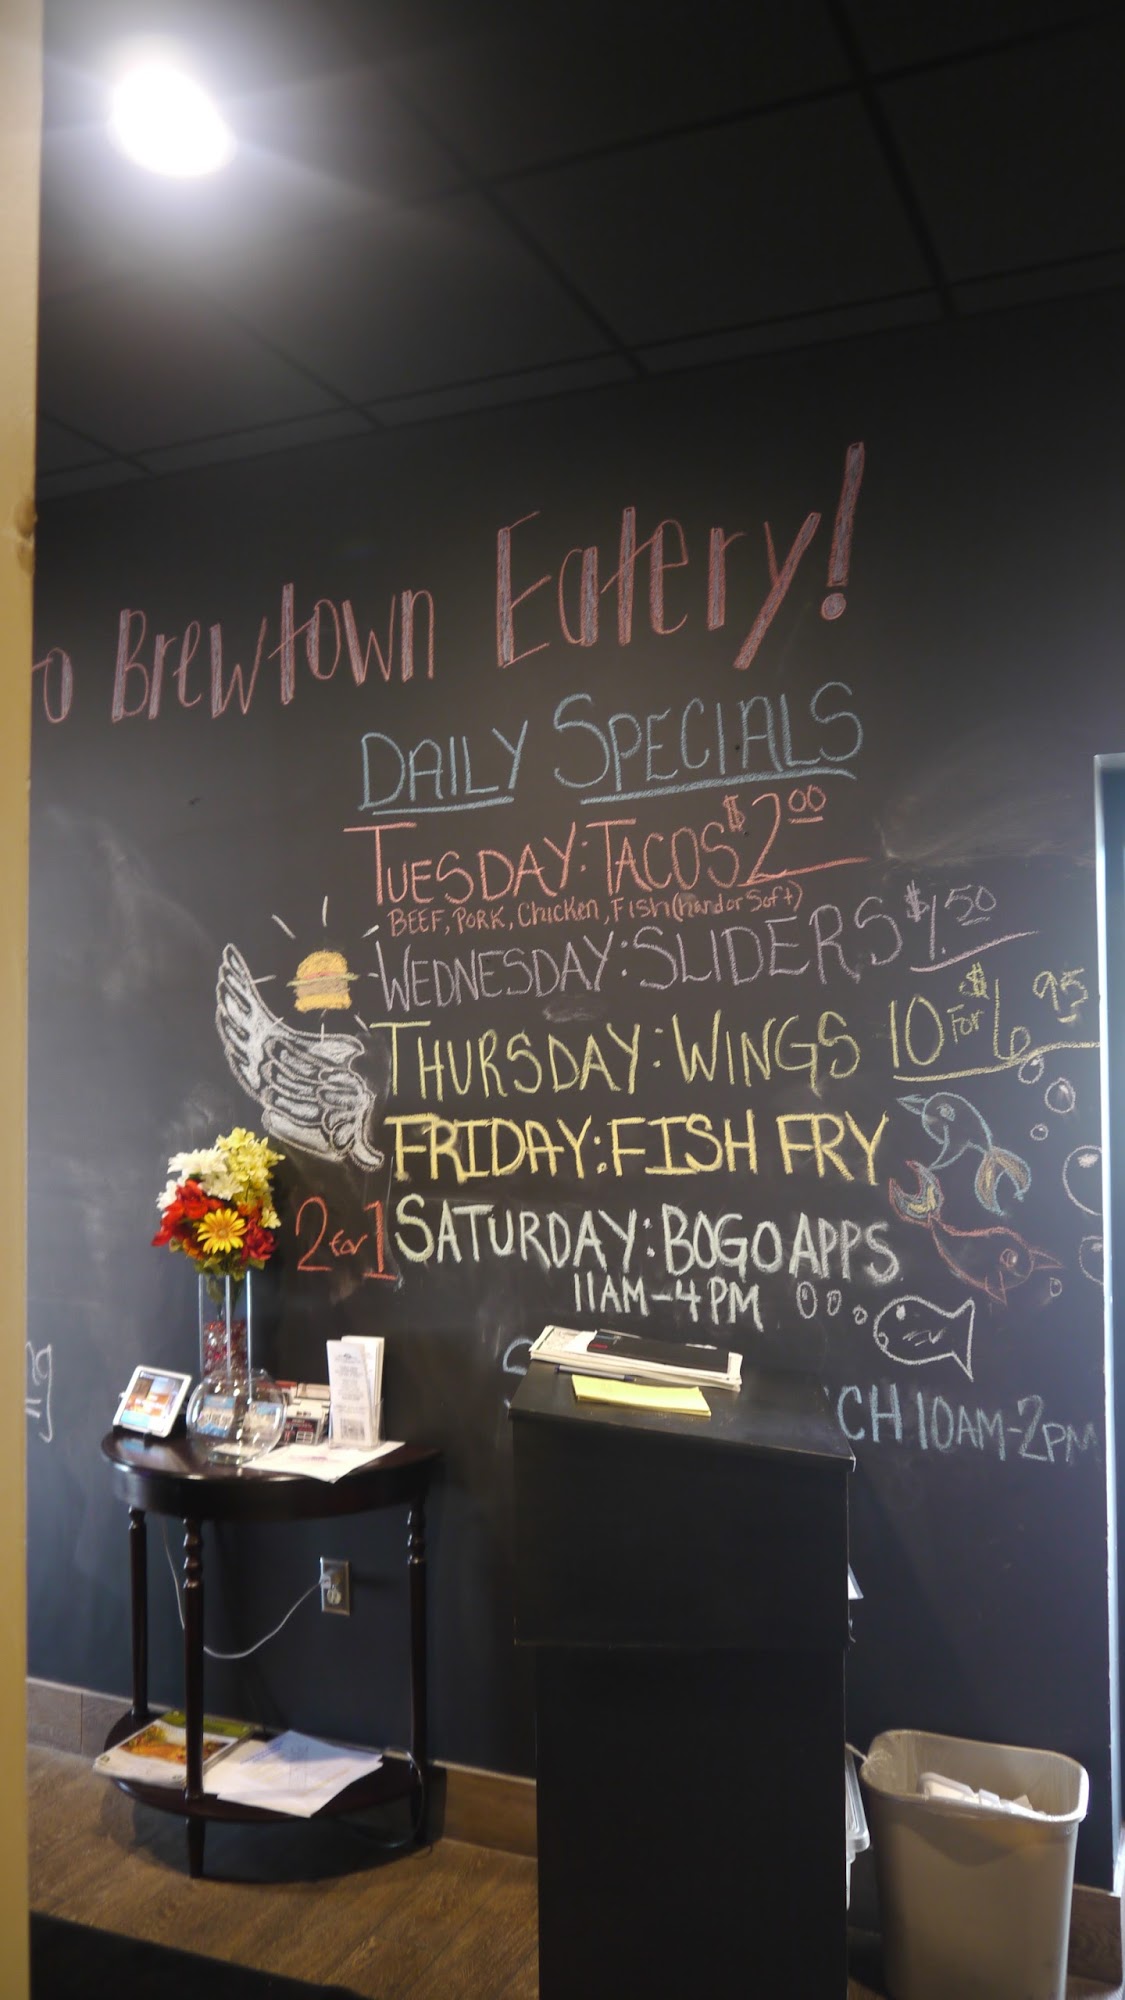 to Brewtown Eatery!
DAILY SPECIALS
TUESDAY: TACOS $2.00
BEEF, PORK, Chicken, Fish (hard or Soft)
WEDNESDAY: SLIDERS $1.50
THURSDAY: WINGS 10 for $6.95
FRIDAY: FISH FRY
2 for 1 SATURDAY: BOGO APPS
11AM-4PM
CH 10AM-2PM